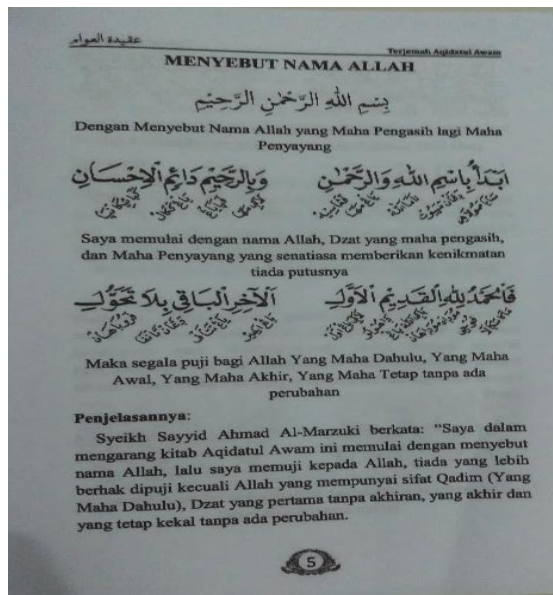 عقيدة العوام
Terjemah Aqidatul Awam
MENYEBUT NAMA ALLAH
بِسْمِ اللهِ الرَّحْمٰنِ الرَّحِيْمِ
Dengan Menyebut Nama Allah yang Maha Pengasih lagi Maha
Penyayang
اَبْدَأُ بِاسْمِ اللهِ وَالرَّحْمٰنِ وَبِالرَّحِيْمِ دَائِمِ الْاِحْسَانِ
Saya memulai dengan nama Allah, Dzat yang maha pengasih,
dan Maha Penyayang yang senatiasa memberikan kenikmatan
tiada putusnya
فَالْحَمْدُ لِلّٰهِ الْقَدِيْمِ الْاَوَّلِ اَلْآخِرِ الْبَاقِيْ بِلَا تَحَوُّلِ
Maka segala puji bagi Allah Yang Maha Dahulu, Yang Maha
Awal, Yang Maha Akhir, Yang Maha Tetap tanpa ada
perubahan
Penjelasannya:
Syeikh Sayyid Ahmad Al-Marzuki berkata: "Saya dalam
mengarang kitab Aqidatul Awam ini memulai dengan menyebut
nama Allah, lalu saya memuji kepada Allah, tiada yang lebih
berhak dipuji kecuali Allah yang mempunyai sifat Qadim (Yang
Maha Dahulu), Dzat yang pertama tanpa akhiran, yang akhir dan
yang tetap kekal tanpa ada perubahan.
5